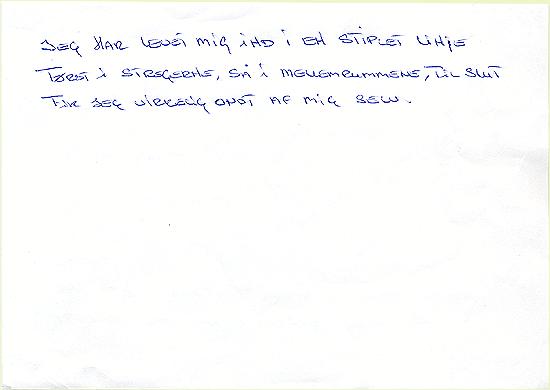 JEG HAR LEVET MIG IND I EN STIPLET LINJE
FØRST I STREGERNE, SÅ I MELLEMRUMMENE, TIL SLUT
FIK JEG VIRKELIG ONDT AF MIG SELV.